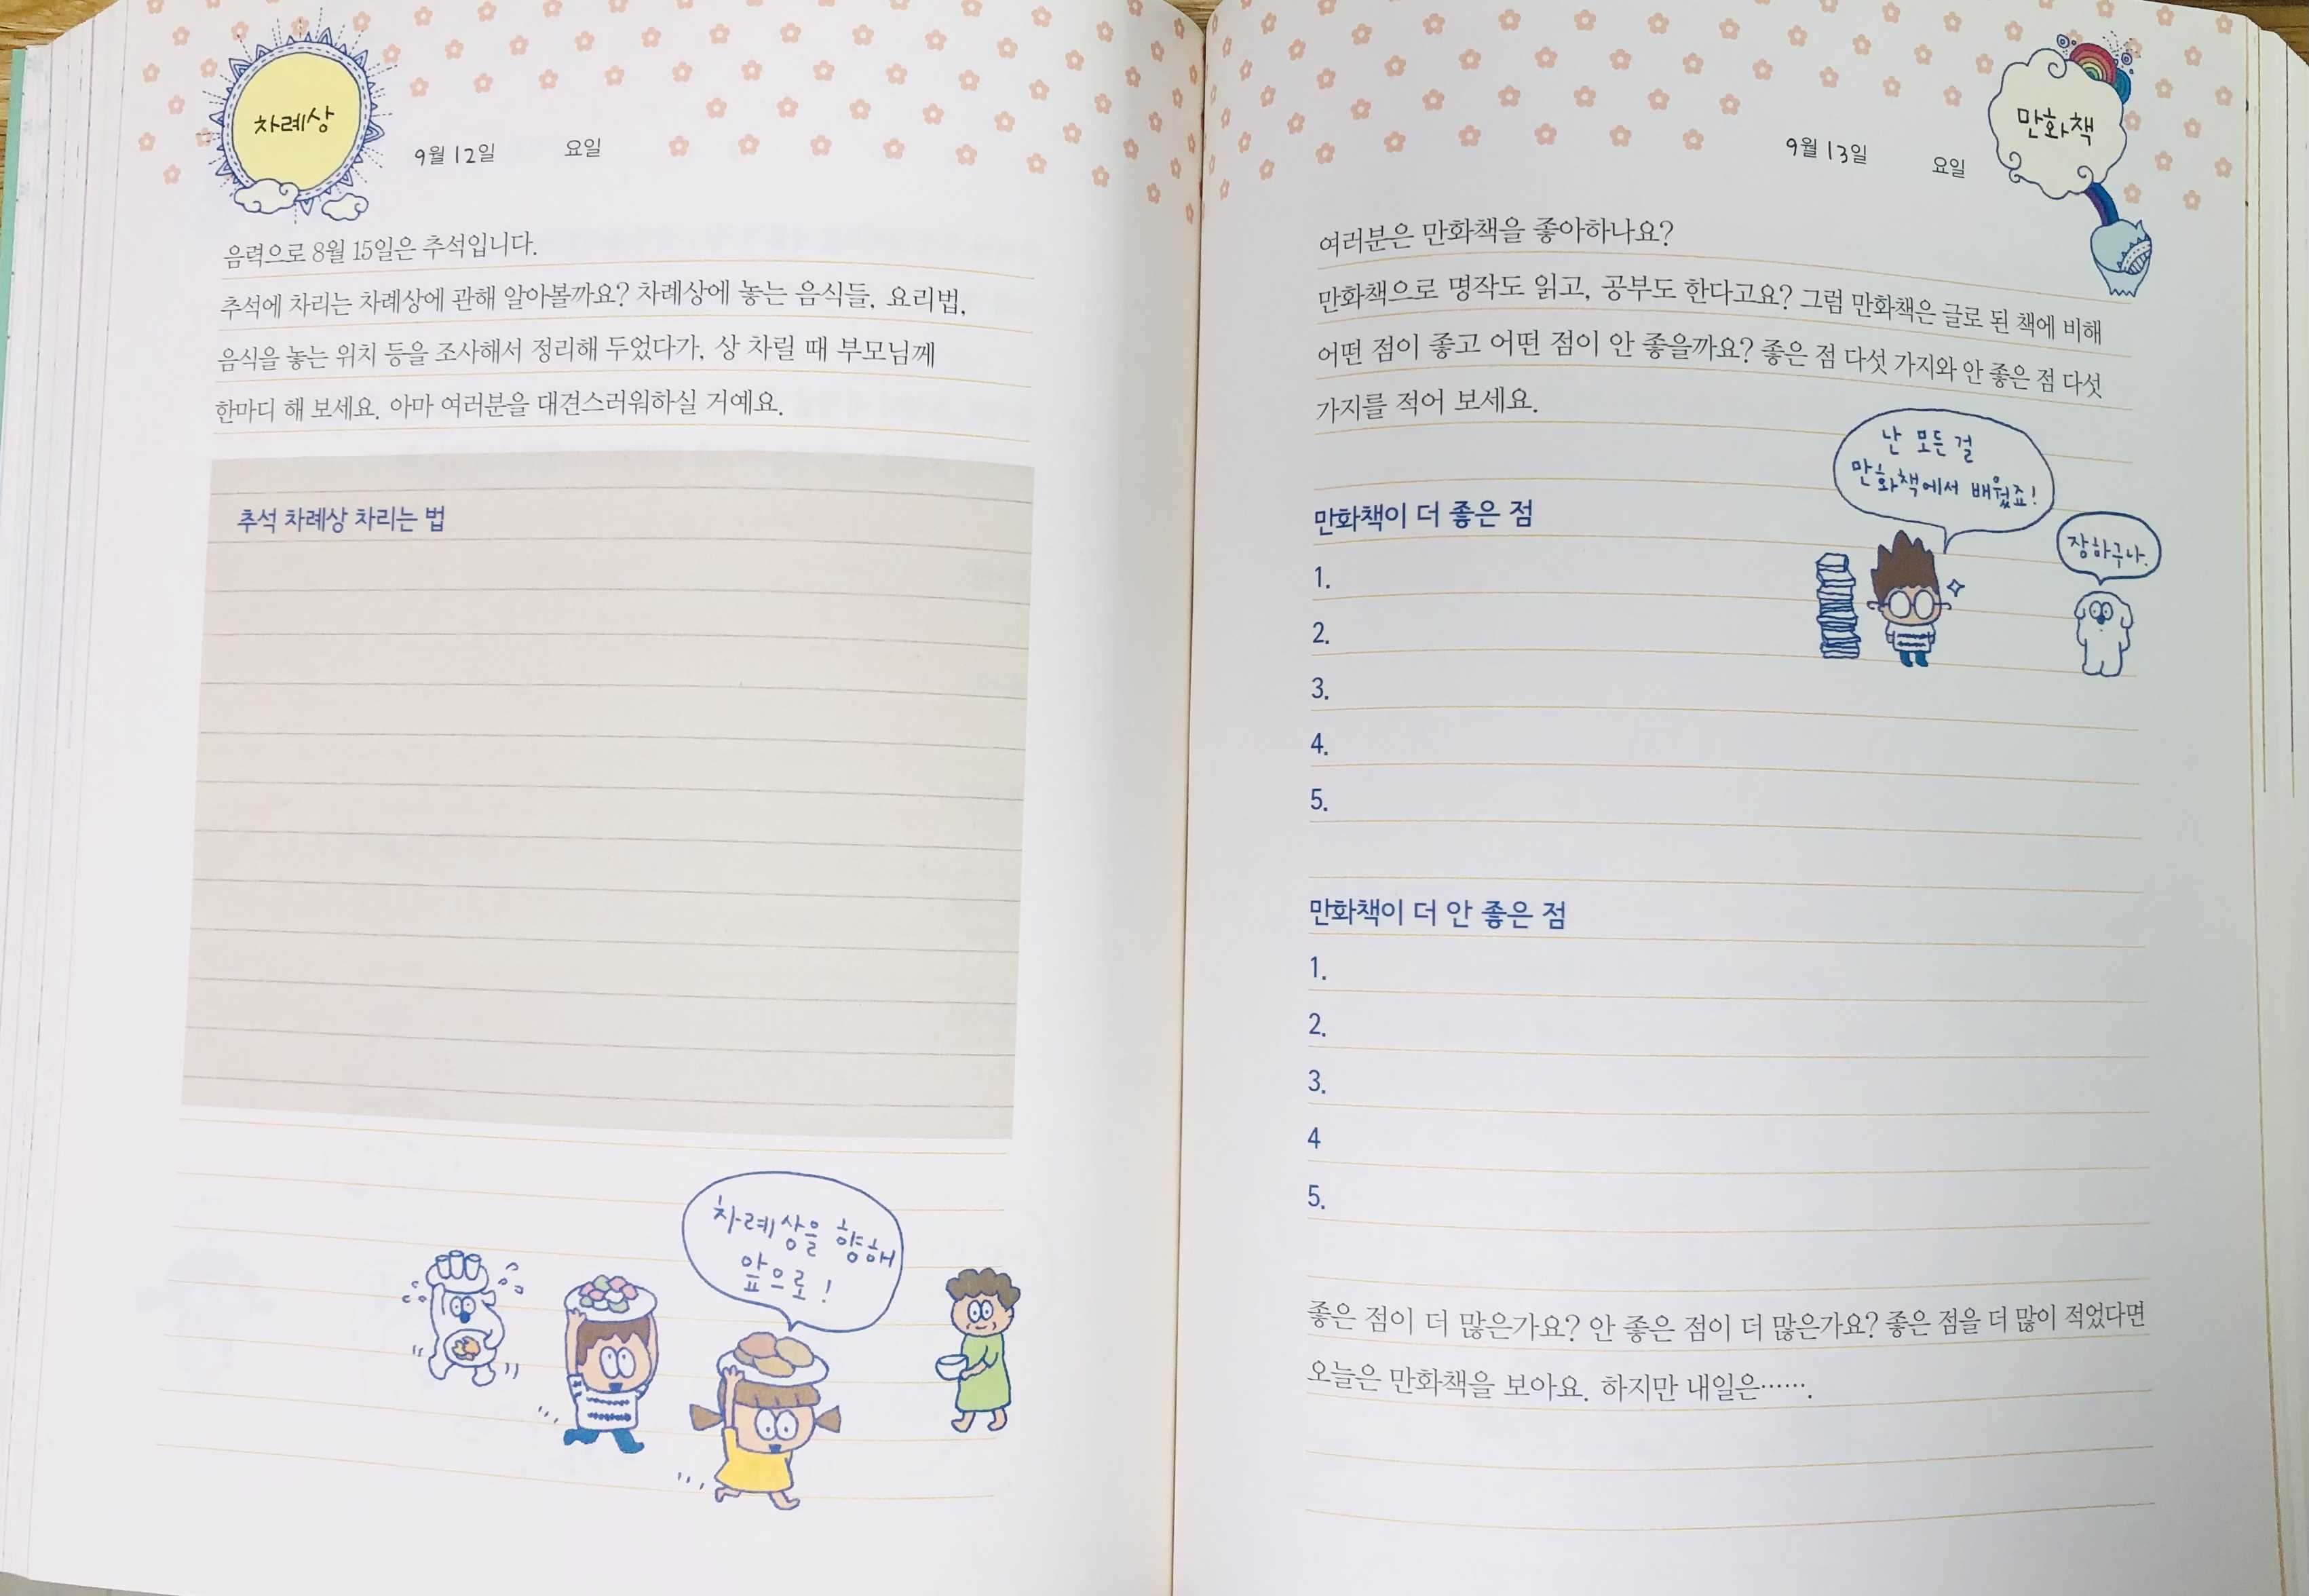 차례상
9월 12일 요일
음력으로 8월 15일은 추석입니다.
추석에 차리는 차례상에 관해 알아볼까요? 차례상에 놓는 음식들, 요리법,
음식을 놓는 위치 등을 조사해서 정리해 두었다가, 상 차릴 때 부모님께
한마디 해 보세요. 아마 여러분을 대견스러워하실 거예요.
추석 차례상 차리는 법
차례상을 향해
앞으로!
9월 13일 요일
만화책
여러분은 만화책을 좋아하나요?
만화책으로 명작도 읽고, 공부도 한다고요? 그럼 만화책은 글로 된 책에 비해
어떤 점이 좋고 어떤 점이 안 좋을까요? 좋은 점 다섯 가지와 안 좋은 점 다섯
가지를 적어 보세요.
난 모든 걸
만화책에서 배웠죠!
장하구나.
만화책이 더 좋은 점
1.
2.
3.
4.
5.
만화책이 더 안 좋은 점
1.
2.
3.
4
5.
좋은 점이 더 많은가요? 안 좋은 점이 더 많은가요? 좋은 점을 더 많이 적었다면
오늘은 만화책을 보아요. 하지만 내일은…….